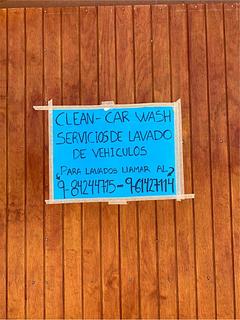 CLEAN-CAR WASH
SERVICIOS DE LAVADO
DE VEHICULOS
¿PARA LAVADOS LLAMAR AL?
9-84244715-961427114